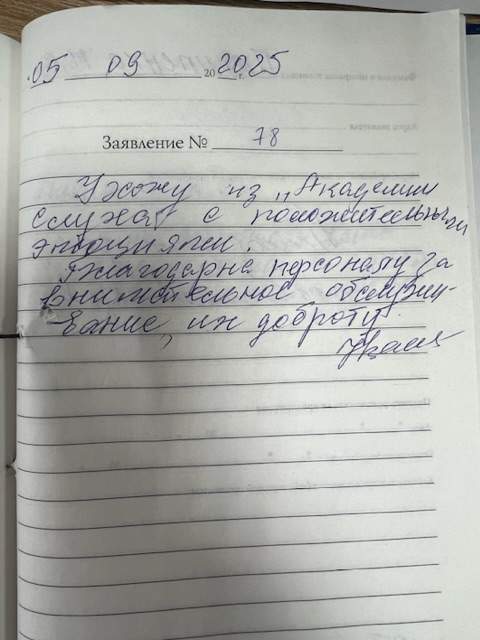 05 09 20 2025 г.
Заявление № 78
Ухожу из „Академии
слуха" с положительными
эмоциями.
Благодарна персоналу за
внимательное обслужи-
вание, их доброту.